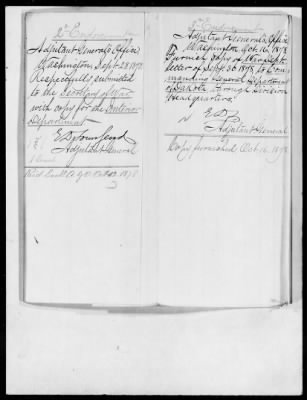 2d Endorsement
Adjutant General's Office
Washington Sept. 28 1878
Respectfully submitted
to the Secretary of War
with copy for the Interior
Department
E D Townsend
Adjutant General
1
Oct. 1878
Adjutant General's Office
Washington Oct. 16, 1878
Furnish copy of
letter of Sept. 1878 to Com-
manding General Department
of Dakota through Division
Headquarters
E D T
Adjutant General
Copy furnished Oct 16, 1878